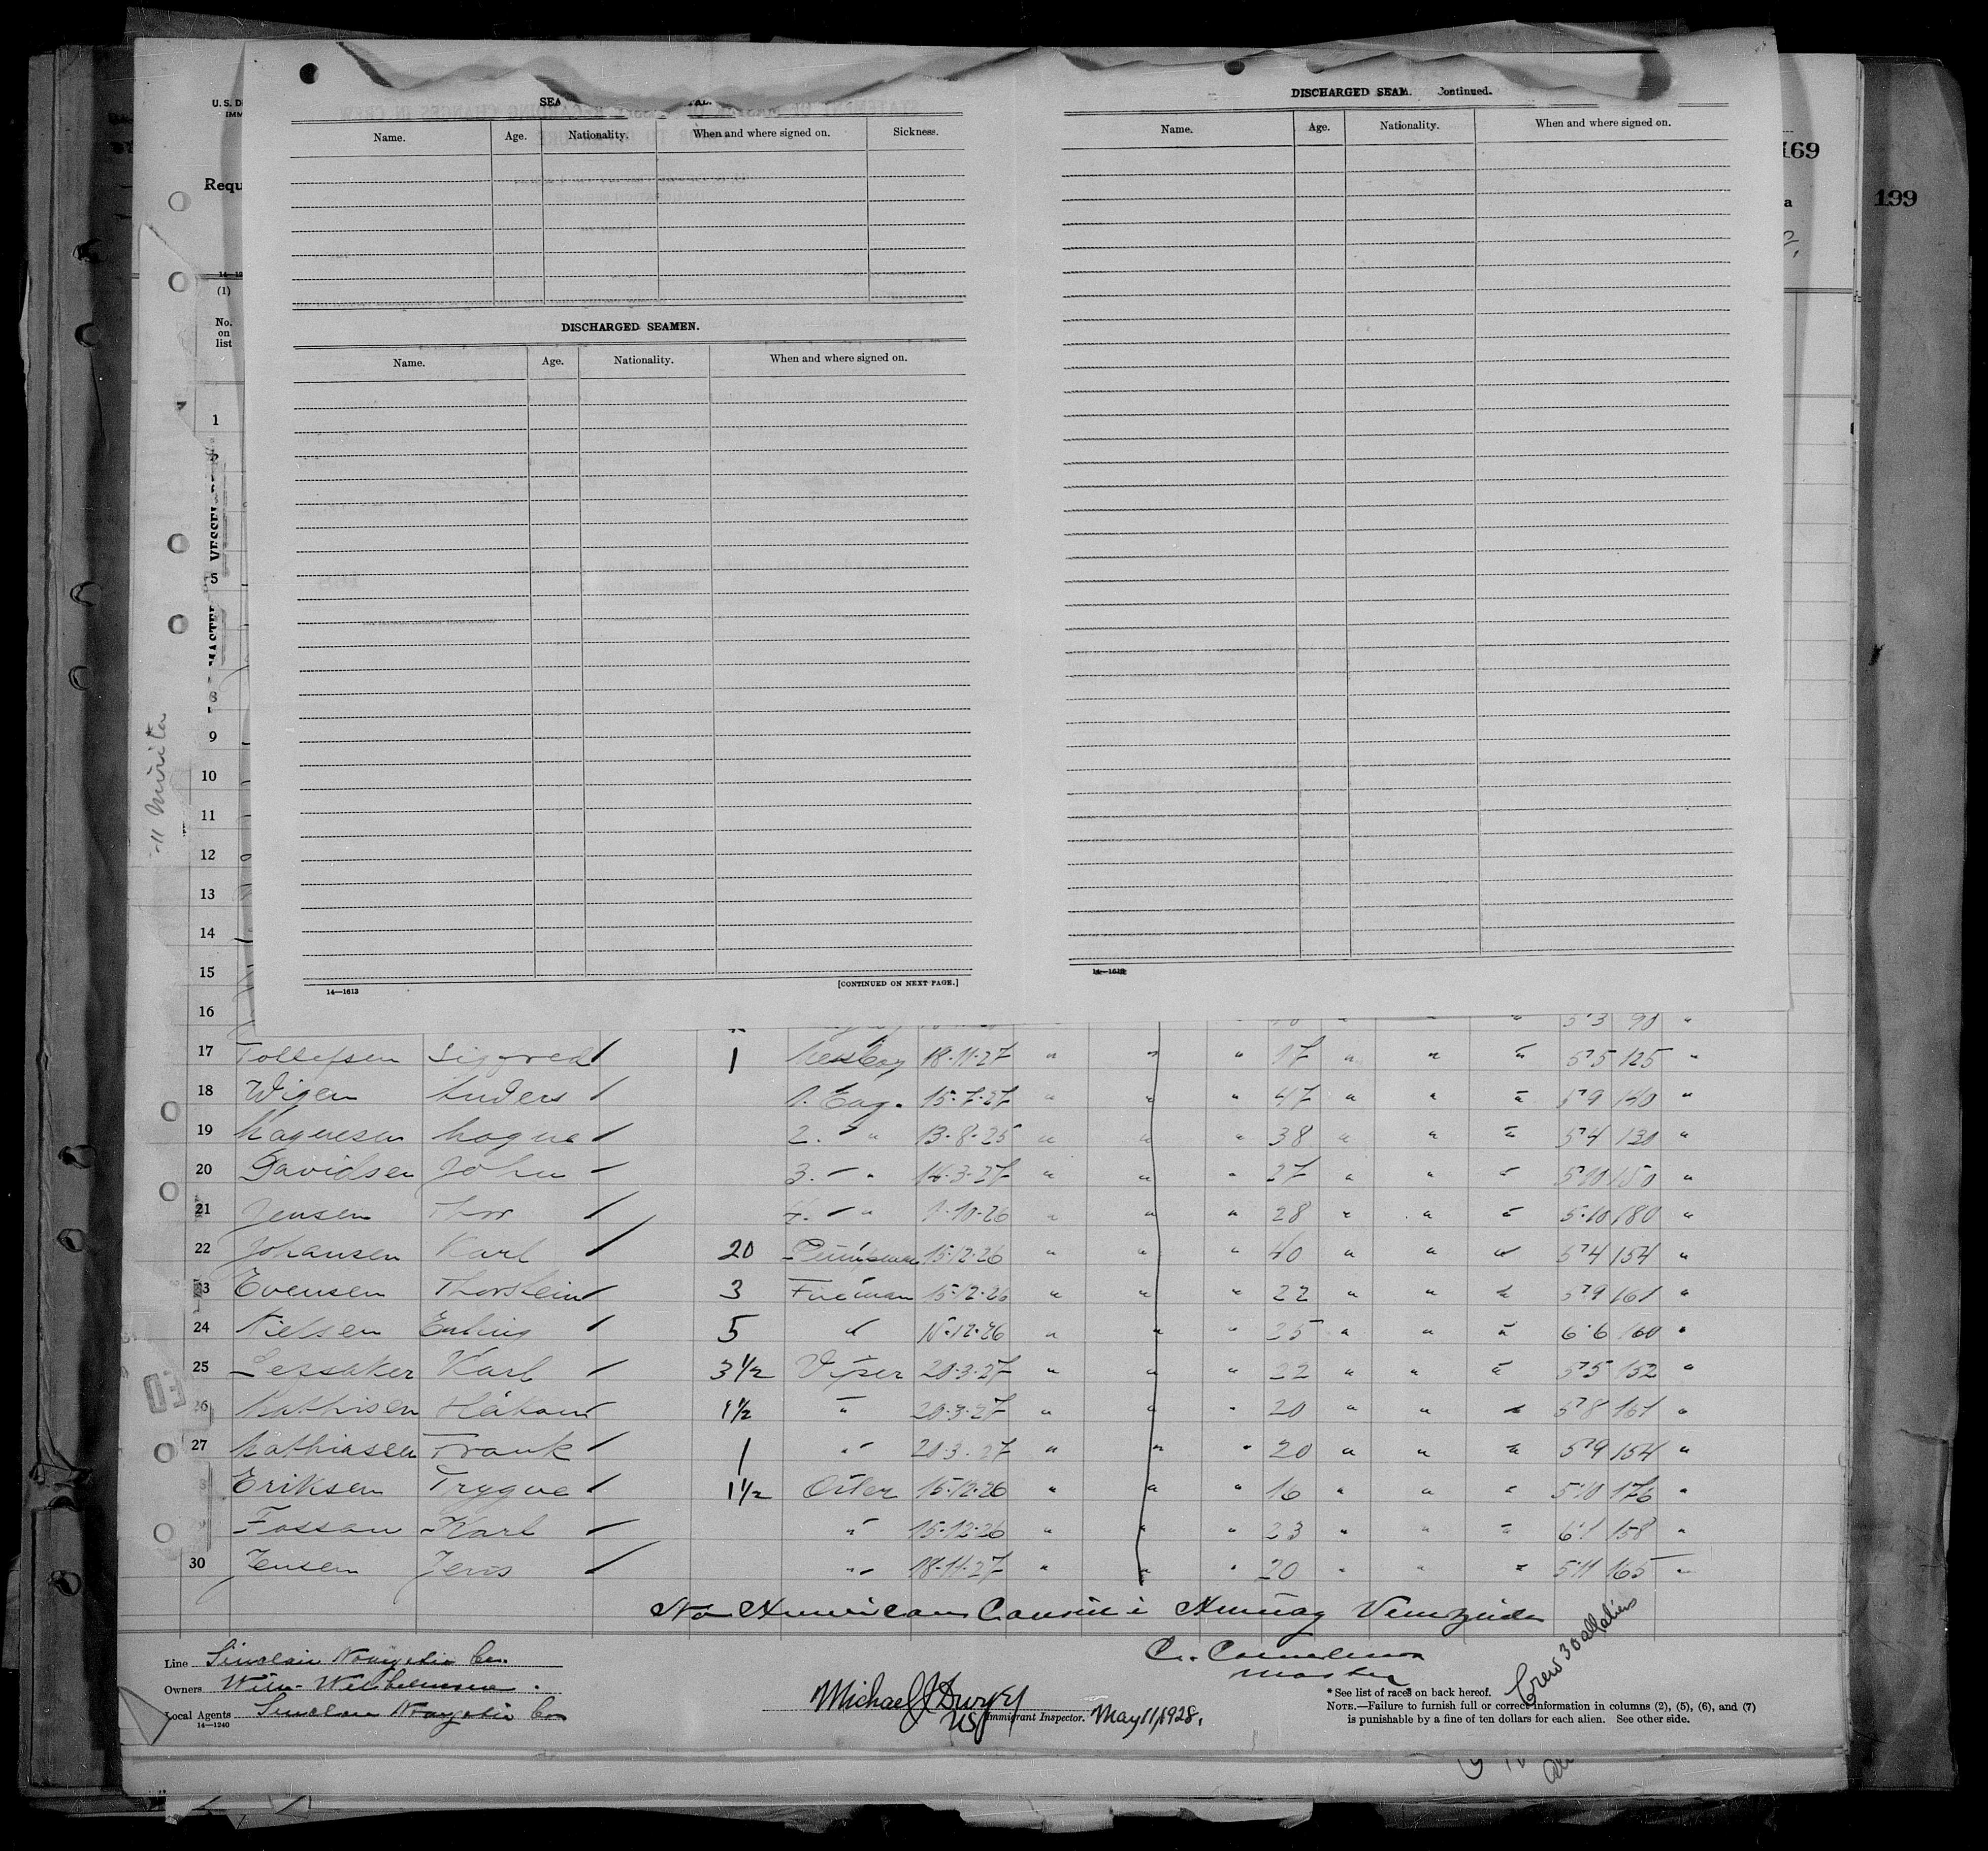 U. S. D
IMM
Requ
169
199
a
SEA
Name. Age. Nationality. When and where signed on. Sickness.
DISCHARGED SEAMEN.
Name. Age. Nationality. When and where signed on.
14—1613
[CONTINUED ON NEXT PAGE.]
DISCHARGED SEAM Continued.
Name. Age. Nationality. When and where signed on.
14—1613
(1)
No. on list
1
5
8
9
10
11
12
13
14
15
16 5'3 90 "
17 Tollefsen Sigfred 1 Messboy 18-11-27 " " " 17 " " " 5'5 125 "
18 Wigen Anders 1. Eng. 15-7-27 " " " 47 " " " 5'9 140 "
19 Magnesen Magne 2. " " 13-8-25 " " " 38 " " " 5'4 130 "
20 Davidsen John 3. " " 14-3-27 " " " 27 " " " 5'10 150 "
21 Jensen Thor 4. " " 1-10-26 " " " 28 " " " 5'10 180 "
22 Johansen Karl 20 15-12-26 " " " 40 " " " 5'4 154 "
23 Evensen Thorstein 3 Fireman 15-12-26 " " " 22 " " " 5'9 161 "
24 Nielsen Erling 5 " 15-12-26 " " " 25 " " " 6'6 160 "
25 Lessaker Karl 3½ Viper 20-3-27 " " " 22 " " " 5'5 152 "
26 Mathisen Håkon 1½ " 20-3-27 " " " 20 " " " 5'8 161 "
27 Mathiassen Frank 1 " 20-3-27 " " " 20 " " " 5'9 154 "
Eriksen Trygve 1½ Oiler 15-12-26 " " " 16 " " " 5'10 176 "
Fossan Karl " 15-12-26 " " " 23 " " " 6'1 158 "
30 Jensen Jens " 18-11-27 " " " 20 " " " 5'11 165 "
No American Consul i
Line Sinclair Navigation Co.
Owners Wilh. Wilhelmsen.
Local Agents Sinclair Navigation Co
14—1240
C. Cornelissen
Master
Michael J Dwyer
US Immigrant Inspector. May 11, 1928.
Crew 30 all aliens
* See list of races on back hereof.
NOTE.—Failure to furnish full or correct information in columns (2), (5), (6), and (7)
is punishable by a fine of ten dollars for each alien. See other side.